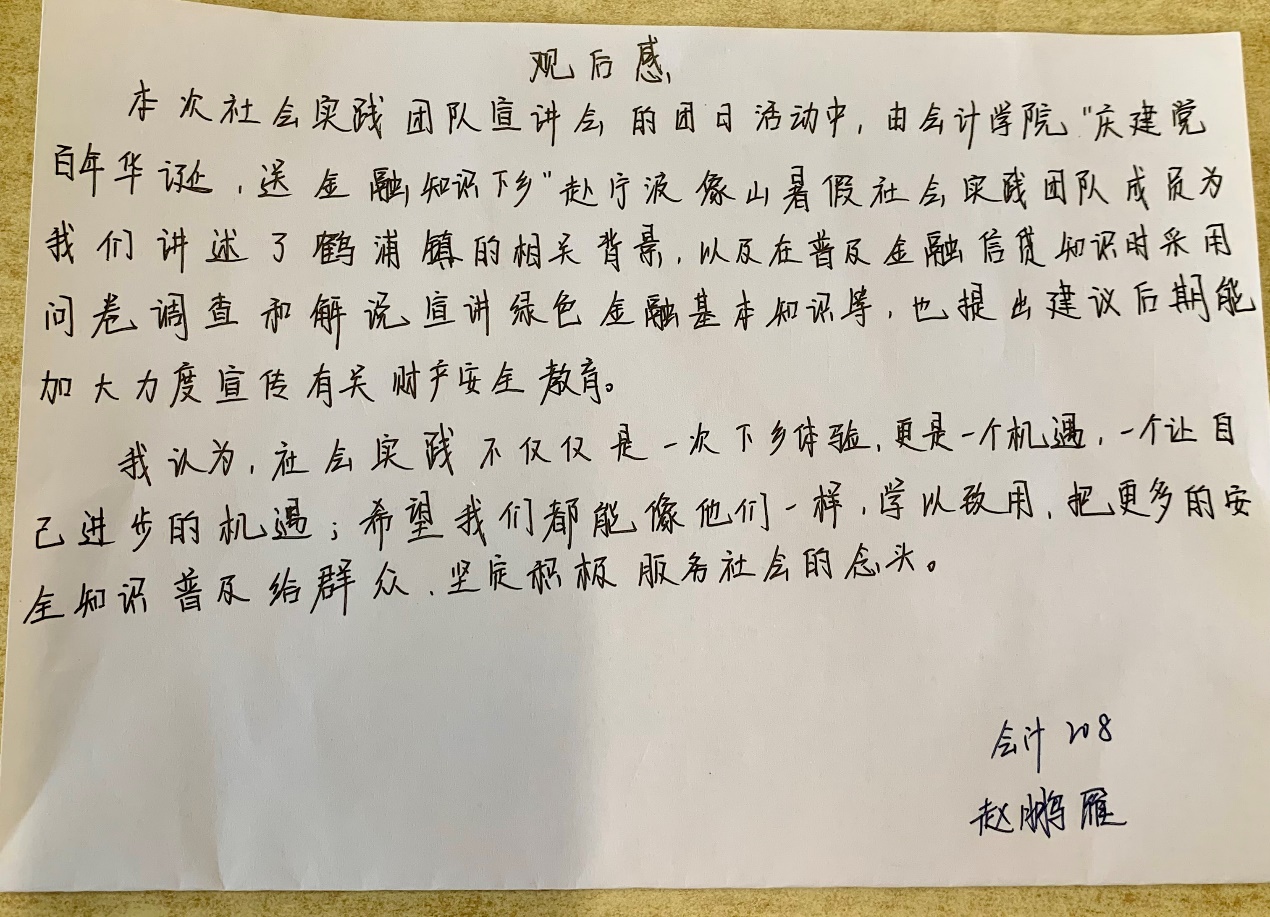 观后感
本次社会实践团队宣讲会的团日活动中，由会计学院“庆建党
百年华诞，送金融知识下乡”赴宁波像山暑假社会实践团队成员为
我们讲述了鹤浦镇的相关背景，以及在普及金融信贷知识时采用
问卷调查和解说宣讲绿色金融基本知识等，也提出建议后期能
加大力度宣传有关财产安全教育。
我认为，社会实践不仅仅是一次下乡体验，更是一个机遇，一个让自
己进步的机遇；希望我们都能像他们一样，学以致用，把更多的安
全知识普及给群众，坚定积极服务社会的念头。
会计208
赵鹏雁